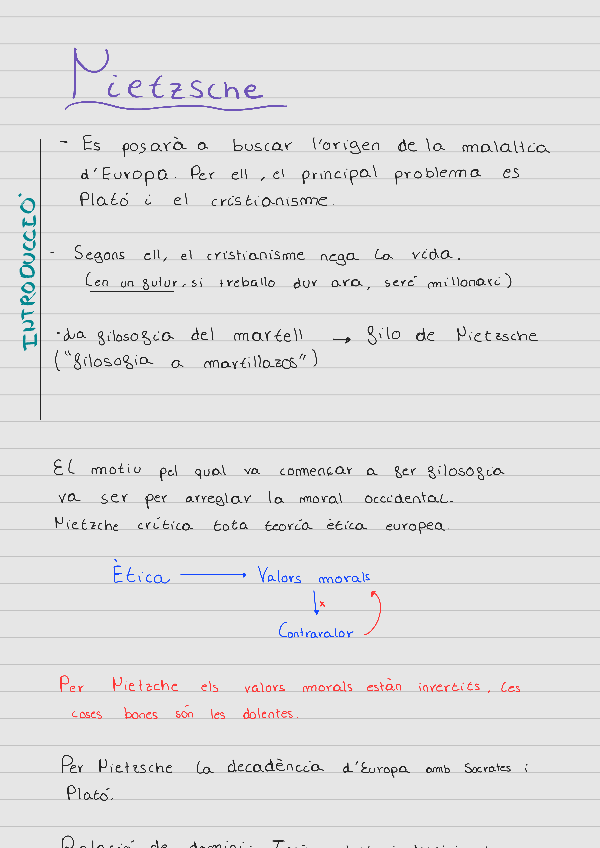 Nietzsche
INTRODUCCIÓ
- Es posarà a buscar l'origen de la malaltia
d'Europa. Per ell, el principal problema es
Plató i el cristianisme.
- Segons ell, el cristianisme nega la vida.
(en un futur, si treballo dur ara, seré millonari)
·La filosofia del martell → filo de Nietzsche
("filosofia a martillazos")
El motiu pel qual va començar a fer filosofia
va ser per arreglar la moral occidental.
Nietzche crítica tota teoría ètica europea.
Ètica → Valors morals
x
Contravalor
Per Nietzche els valors morals estàn invertits, les
coses bones són les dolentes.
Per Nietzsche la decadència d'Europa amb Socrates i
Plató.
Relació de domini